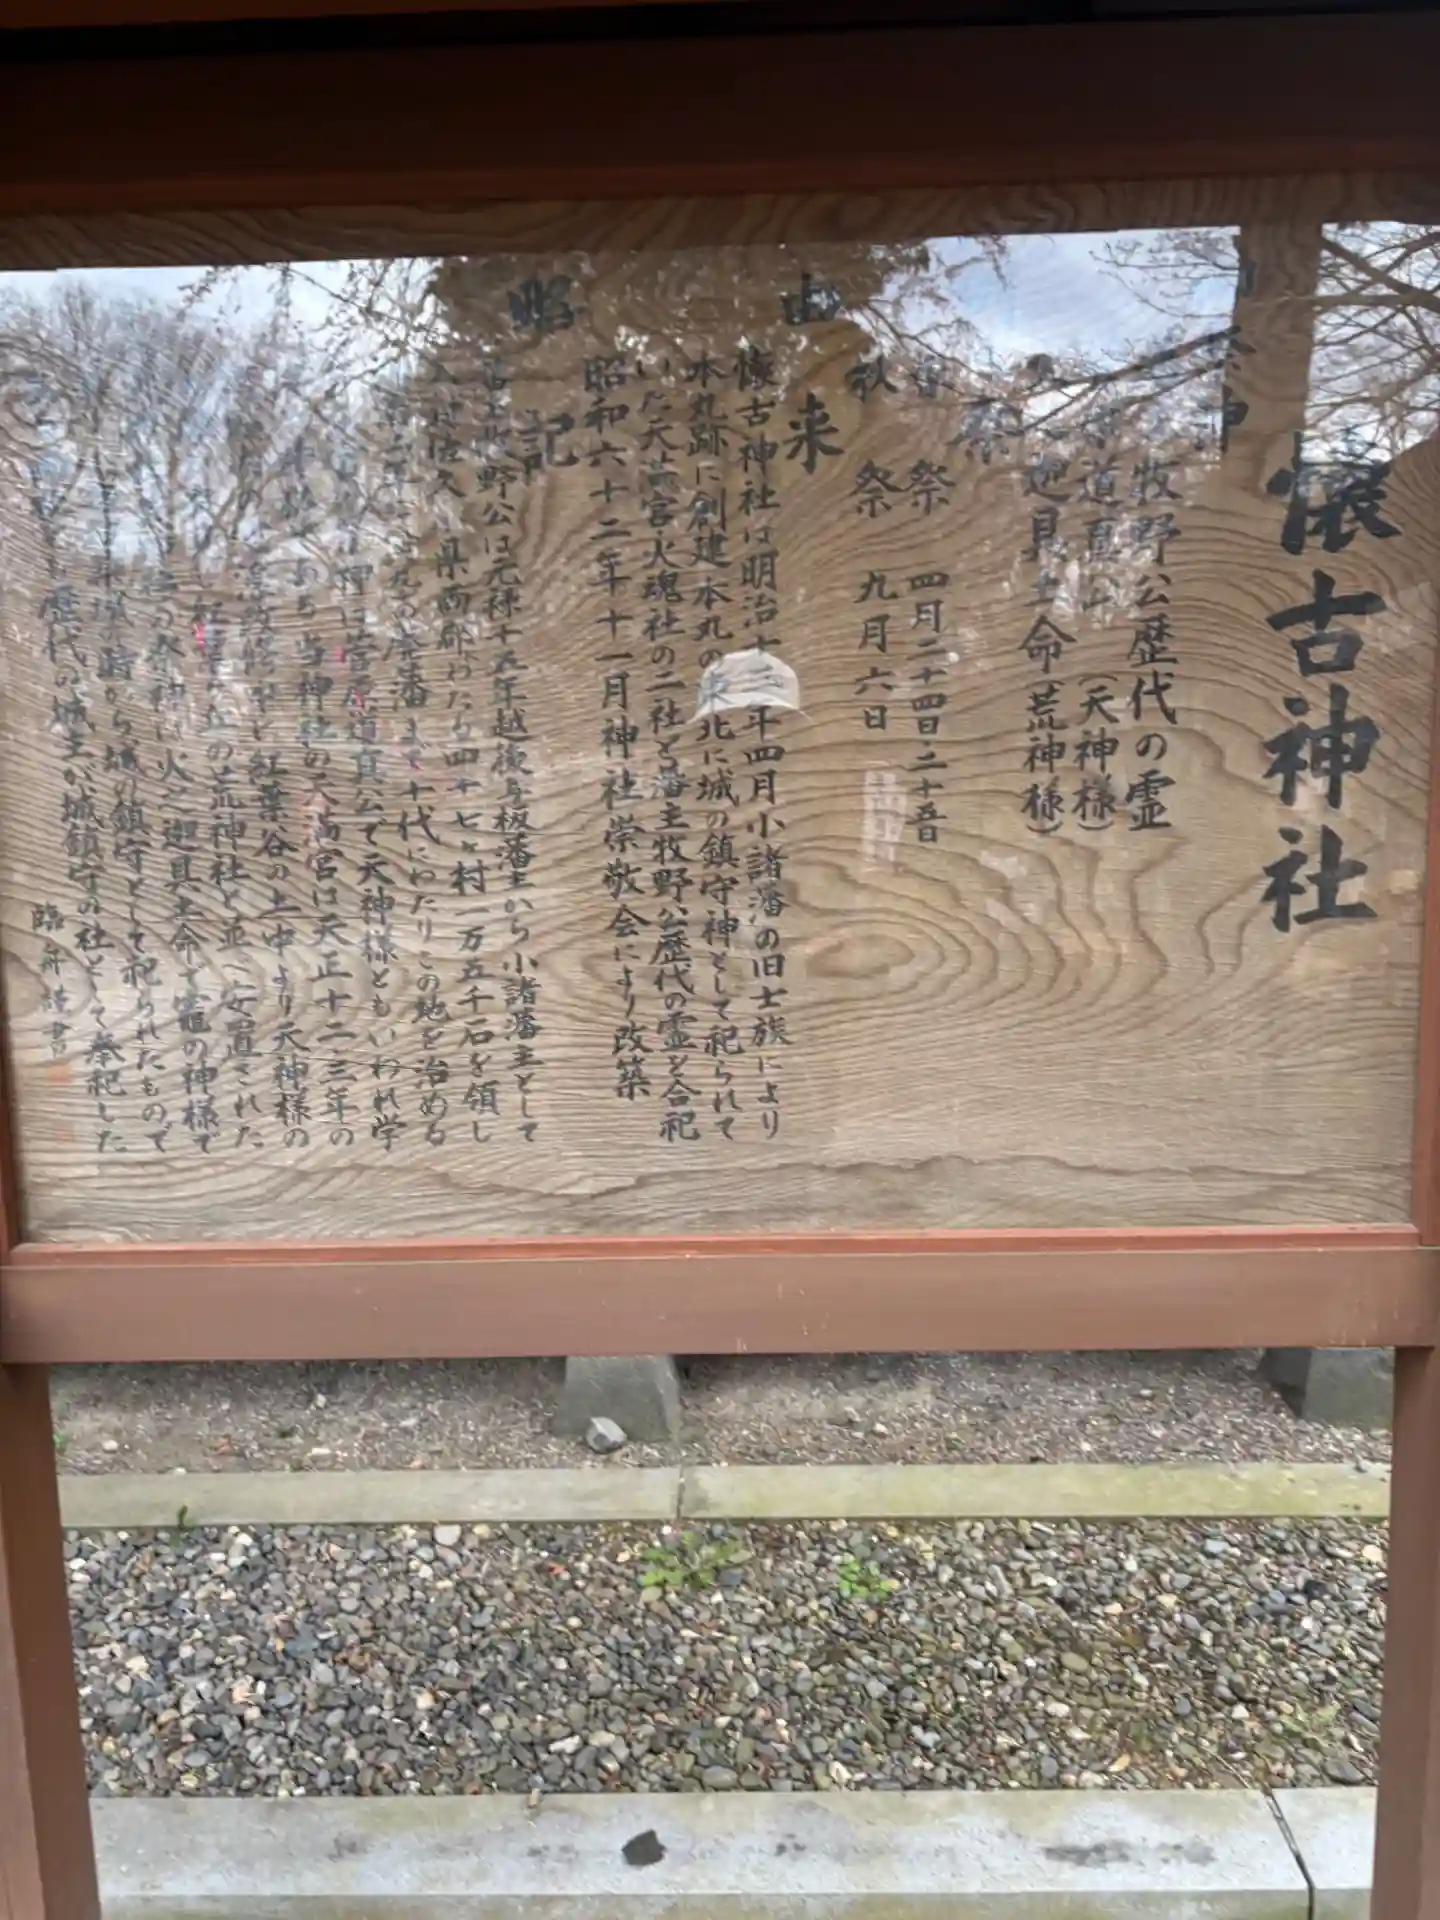 懐古神社
祭神
牧野公歴代の霊
道真公(天神様)
迦具土命(荒神様)
祭
祭 四月二十四日二十五日
秋 祭 九月六日
由来
懐古神社は明治十三年四月小諸藩の旧士族により
本丸跡に創建本丸の東北に城の鎮守神として祀られて
いた天満宮・火魂社の二社と藩主牧野公歴代の霊を合祀
昭和六十二年十一月神社崇敬会により改築
記
牧野公は元禄十五年越後与板藩主から小諸藩主として
佐久 県両郡にわたる四十七ヶ村一万五千石を領し
廃藩まで十代にわたりこの地を治める
神は菅原道真公で天神様ともいわれ学
当神社の天満宮は天正十二・三年の
紅葉谷の上中より天神様の
丘の荒神社と並べ安置された
の祭神は火之迦具土命で竈の神様で
時から城の鎮守として祀られたもので
歴代の城主が城鎮守の社として奉祀した
臨舟謹書